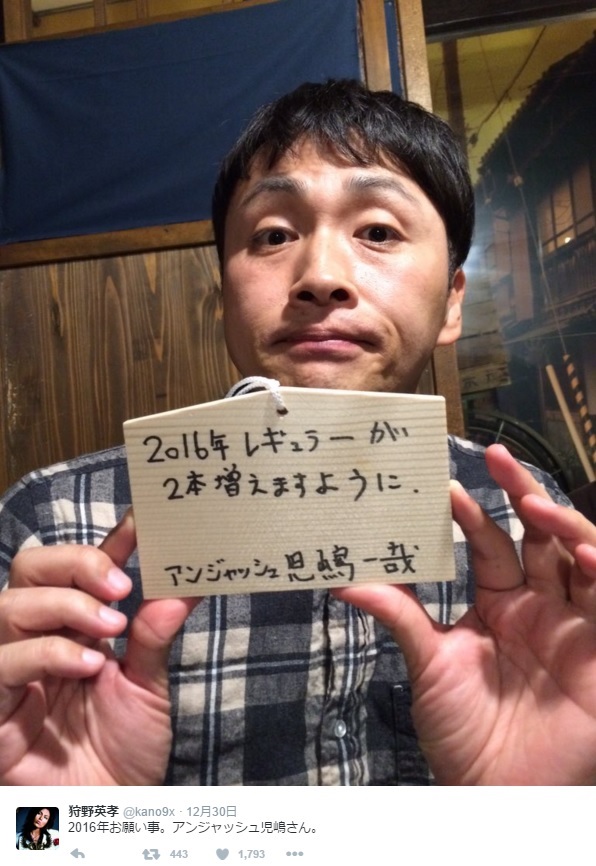 2016年 レギュラーが
2本増えますように.
アンジャッシュ児嶋一哉
狩野英孝 @kano9x · 12月30日
2016年お願い事。アンジャッシュ児嶋さん。
443
1,793